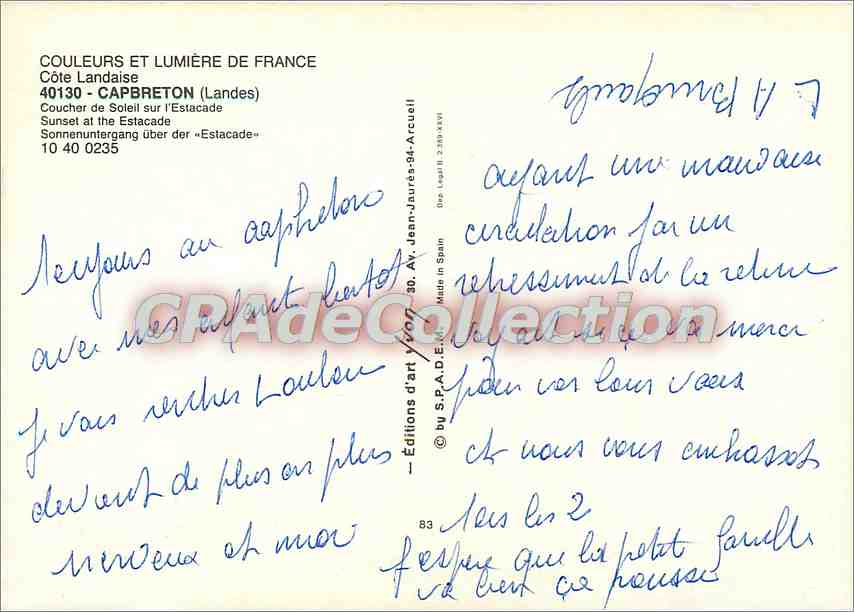 COULEURS ET LUMIÈRE DE FRANCE
Côte Landaise
40130 - CAPBRETON (Landes)
Coucher de Soleil sur l'Estacade
Sunset at the Estacade
Sonnenuntergang über der «Estacade»
10 40 0235
toujours au capbreton
avec mes enfants bientot
je vais Loulou
devient de plus en plus
nerveux et moi
— Éditions d'art yvon 30, Av. Jean-Jaurès-94-Arcueil
© by S.P.A.D.E.M. Made in Spain Dép. Légal B. 2.389-XXVI
ayant une mauvaise
circulation par un
retressiment de la
va merci
pour vos bons vœux
et nous vous embrassot
tous les 2
83
J'espère que la petite famille
va bien ça pousse
CPAdeCollection